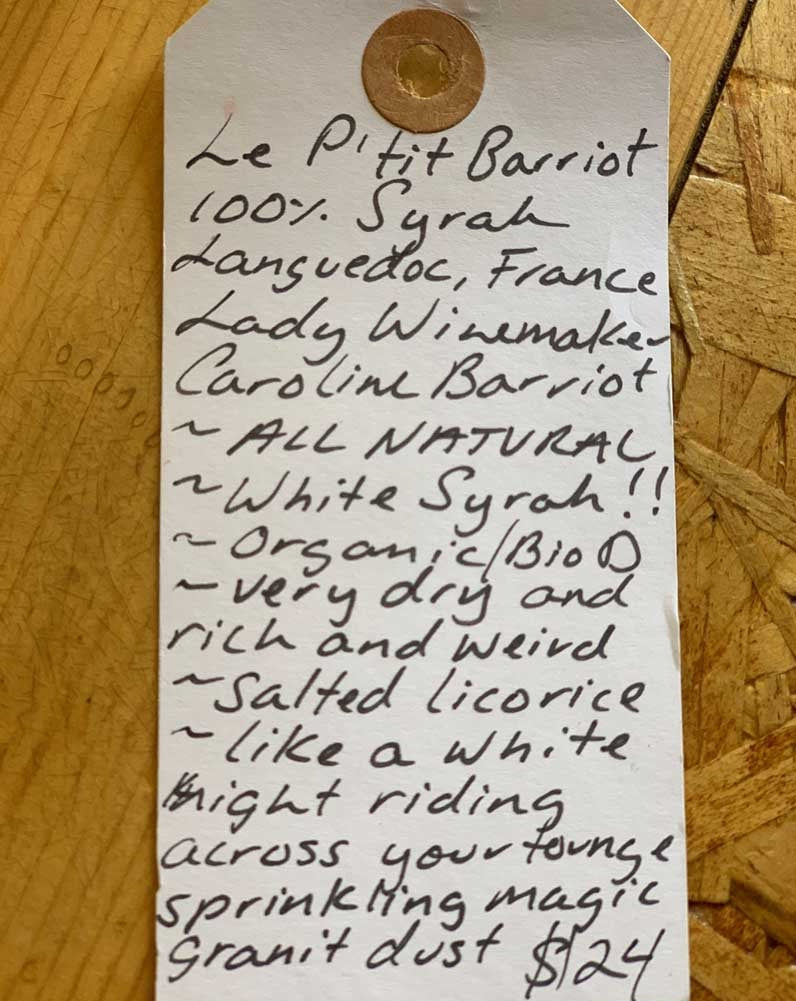 Le P'tit Barriot
100% Syrah
Languedoc, France
Lady Winemaker
Caroline Barriot
~ ALL NATURAL
~ White Syrah!!
~ Organic/BioD
~ very dry and
rich and weird
~ Salted licorice
~ like a white
knight riding
across your tounge
sprinkling magic
granit dust $24